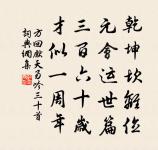 乾坤坎離位
元會運世篇
三百六十歲
才似一周年
方回天易吟三十首
詞典網集